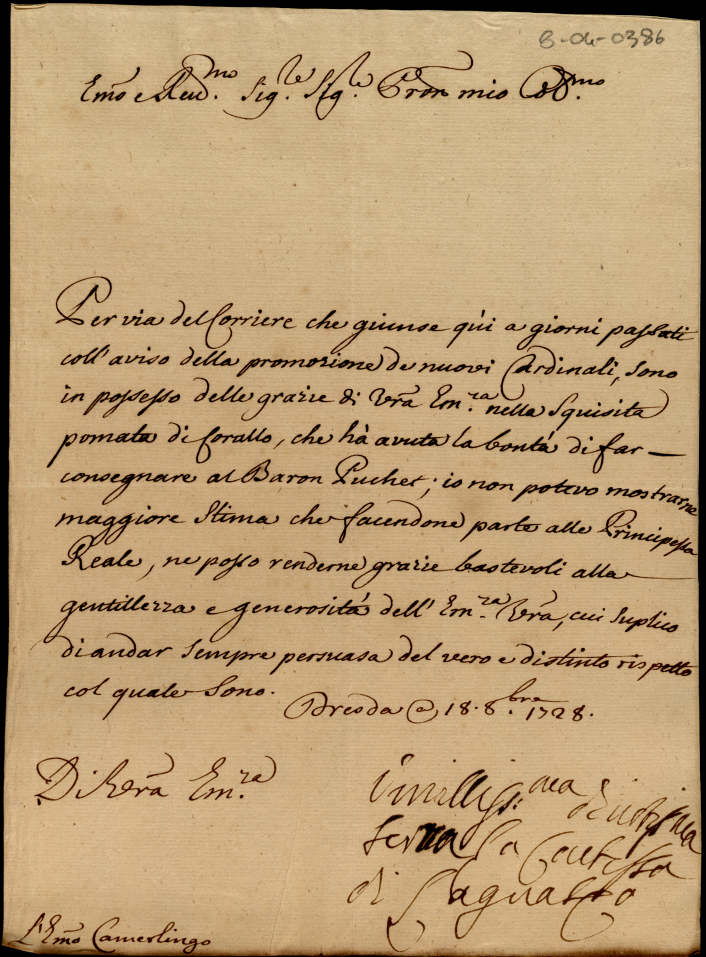 8-04-0386
Emo e Reud.mo Sig.re Sig.re Pron mio Col.mo
Per via del Corriere che giunse qùi a giorni passati
coll'aviso della promozione de nuovi Cardinali, sono
in possesso delle grazie di Vrã Em.za nella Squisita
pomata di Corallo, che hà avuta la bontá di far
consegnare al Baron Puchet; io non potevo mostrarne
maggiore stima che facendone parte alle Principessa
Reale, ne posso renderne grazie bastevoli alla
gentillezza e generositá dell'Em.za Vrã, cui suplico
di andar sempre persuasa del vero e distinto rispetto
col quale sono.
Dresda @ 18. 8.bre 1728.
Di Vrã Em.za
Umilliss.ma
Serva la Contessa
di
L'Emo Camerlingo